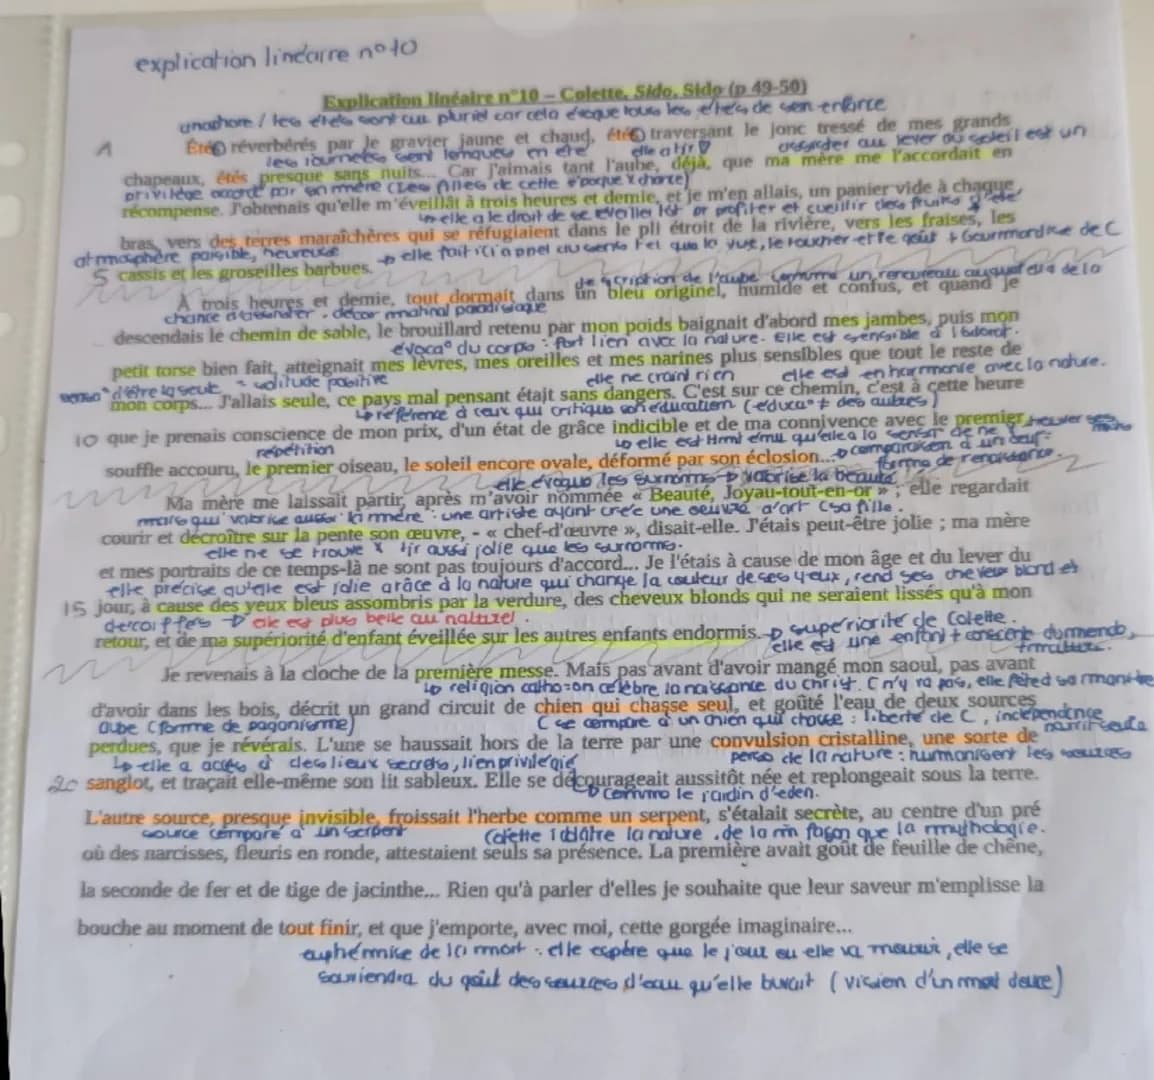 explication linéaire n°10
Explication linéaire n°10 – Colette, Sido, Sido (p 49-50)
anaphore / les étés sont au pluriel car cela évoque tous les étés de son enfance
1 Étés réverbérés par le gravier jaune et chaud, étés traversant le jonc tressé de mes grands
les journées sont longues en été elle a tir assister au lever du soleil est un
chapeaux, étés presque sans nuits... Car j'aimais tant l'aube, déjà, que ma mère me l'accordait en
privilège accordé par sa mère (les filles de cette époque chance)
récompense. J'obtenais qu'elle m'éveillât à trois heures et demie, et je m'en allais, un panier vide à chaque
elle a le droit de se réveiller tôt pr profiter et cueillir des fruits d'été
bras, vers des terres maraîchères qui se réfugiaient dans le pli étroit de la rivière, vers les fraises, les
atmosphère paisible, heureuse → elle fait ici appel au sens tel que la vue, le toucher et le goût + Gourmandise de C
5 cassis et les groseilles barbues.
description de l'aube comme un renouveau auquel elle a la
À trois heures et demie, tout dormait dans un bleu originel, humide et confus, et quand je
chance d'assister. décor matinal paradisiaque
descendais le chemin de sable, le brouillard retenu par mon poids baignait d'abord mes jambes, puis mon
évoca° du corps : fort lien avec la nature. Elle est sensible à l'odorat.
petit torse bien fait, atteignait mes lèvres, mes oreilles et mes narines plus sensibles que tout le reste de
sensa° d'être la seule = solitude positive elle ne craint rien elle est en harmonie avec la nature.
mon corps... J'allais seule, ce pays mal pensant était sans dangers. C'est sur ce chemin, c'est à cette heure
↳ référence à ceux qui critique son éducation (-éduca° ≠ des autres)
10 que je prenais conscience de mon prix, d'un état de grâce indicible et de ma connivence avec le premier
répétition ↳ elle est tlmt ému qu'elle a la sensa° de ne comparaison à un oeuf =
souffle accouru, le premier oiseau, le soleil encore ovale, déformé par son éclosion...
forme de renaissance.
elle évoque les surnoms → valorise la beauté
Ma mère me laissait partir, après m'avoir nommée « Beauté, Joyau-tout-en-or » ; elle regardait
mais qui valorise aussi la mère : une artiste ayant créé une oeuvre d'art (sa fille.
courir et décroître sur la pente son œuvre, - « chef-d'œuvre », disait-elle. J'étais peut-être jolie ; ma mère
elle ne se trouve x tjr aussi jolie que les surnoms.
et mes portraits de ce temps-là ne sont pas toujours d'accord... Je l'étais à cause de mon âge et du lever du
elle précise qu'elle est jolie grâce à la nature qui change la couleur de ses yeux, rend ses cheveux blond et
15 jour, à cause des yeux bleus assombris par la verdure, des cheveux blonds qui ne seraient lissés qu'à mon
décoiffés → elle est plus belle au naturel.
retour, et de ma supériorité d'enfant éveillée sur les autres enfants endormis. → supériorité de Colette.
elle est une enfant + consciente du monde,
+ mature.
Je revenais à la cloche de la première messe. Mais pas avant d'avoir mangé mon saoul, pas avant
↳ religion catho = on célèbre la naissance du Christ. C n'y va pas, elle
d'avoir dans les bois, décrit un grand circuit de chien qui chasse seul, et goûté l'eau de deux sources
aube (forme de paganisme) C se compare à un chien qui chasse : liberté de C, indépendance
nourrit seule
perdues, que je révérais. L'une se haussait hors de la terre par une convulsion cristalline, une sorte de
↳ elle a accès à des lieux secrets, lien privilégié perso de la nature : humanisent les sources
20 sanglot, et traçait elle-même son lit sableux. Elle se décourageait aussitôt née et replongeait sous la terre.
→ comme le jardin d'eden.
L'autre source, presque invisible, froissait l'herbe comme un serpent, s'étalait secrète, au centre d'un pré
source comparé à un serpent Colette idolâtre la nature. de la m̂ façon que la mythologie.
où des narcisses, fleuris en ronde, attestaient seuls sa présence. La première avait goût de feuille de chêne,
la seconde de fer et de tige de jacinthe... Rien qu'à parler d'elles je souhaite que leur saveur m'emplisse la
bouche au moment de tout finir, et que j'emporte, avec moi, cette gorgée imaginaire...
euphémise de la mort : elle espère que le jour ou elle va mourir, elle se
souviendra du goût des sources d'eau qu'elle buvait (vision d'un mort douce)